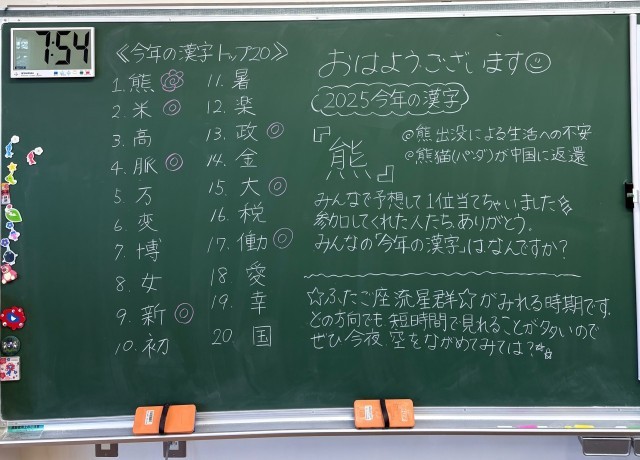 7:54
≪今年の漢字トップ20≫
1. 熊
2. 米 ◎
3. 高
4. 脈 ◎
5. 万
6. 変
7. 博
8. 女
9. 新 ◎
10. 初
11. 暑
12. 楽
13. 政 ◎
14. 金
15. 大 ◎
16. 税
17. 働 ◎
18 愛
19. 幸
20. 国
おはようございます
2025今年の漢字
『熊』
◎熊出没による生活への不安
◎熊猫(パンダ)が中国に返還
みんなで予想して1位当てちゃいました☆
参加してくれた人たち、ありがとう。
みんなの「今年の漢字」は、なんですか?
☆ふたご座流星群☆がみれる時期です。
どの方向でも短時間で見れることが多いので
ぜひ今夜、空をながめてみては?☆☆